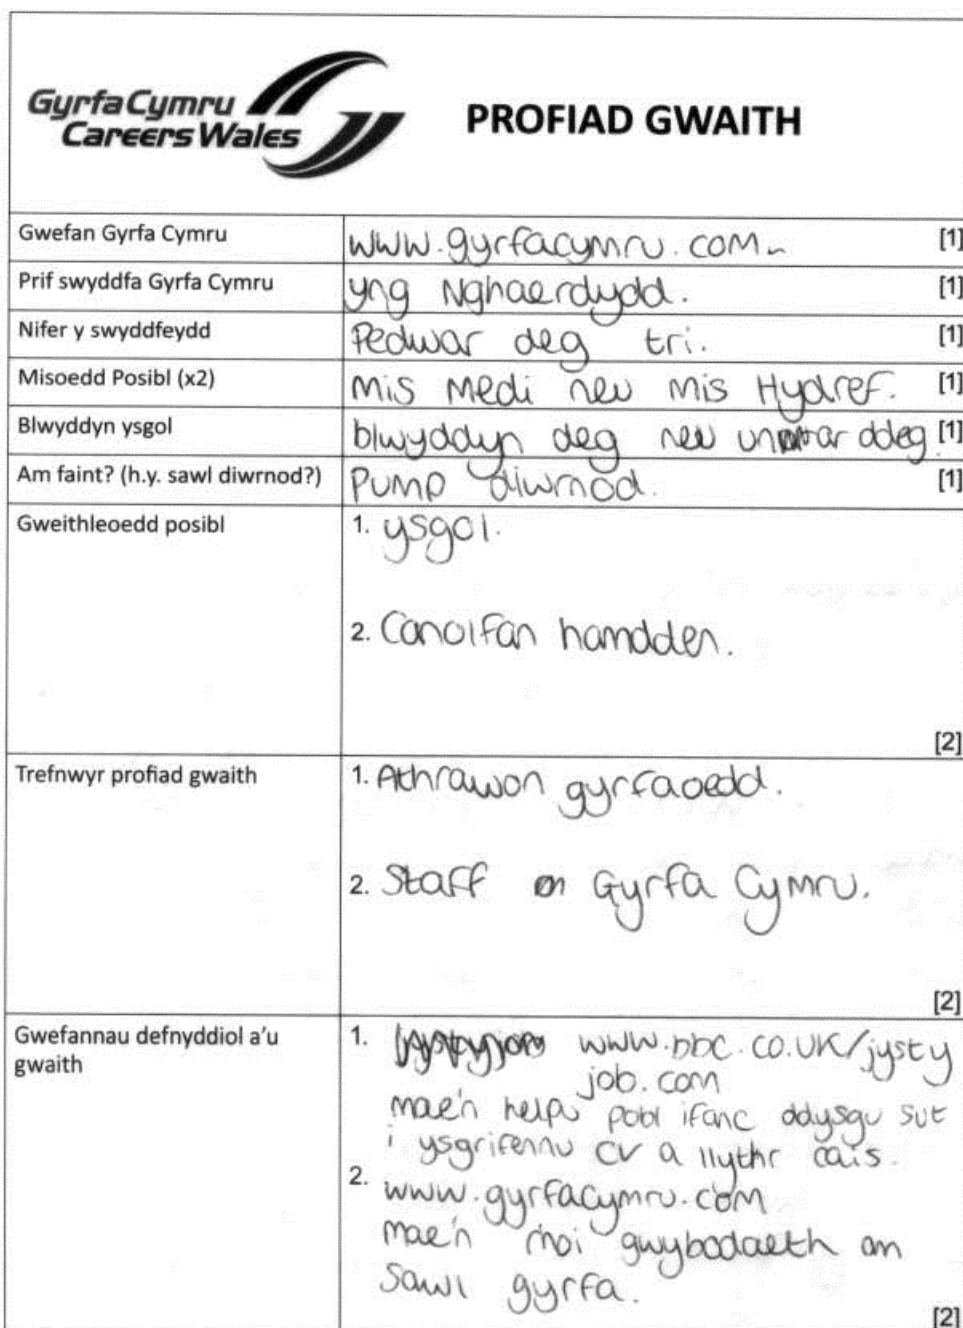 Gyrfa Cymru
Careers Wales
PROFIAD GWAITH
Gwefan Gyrfa Cymru www.gyrfacymru.com [1]
Prif swyddfa Gyrfa Cymru yng Nghaerdydd. [1]
Nifer y swyddfeydd Pedwar deg tri. [1]
Misoedd Posibl (x2) mis Medi neu mis Hydref. [1]
Blwyddyn ysgol blwyddyn deg neu un ar ddeg. [1]
Am faint? (h.y. sawl diwrnod?) Pump diwrnod. [1]
Gweithleoedd posibl 1. ysgol.
2. Canolfan hamdden.
[2]
Trefnwyr profiad gwaith 1. Athrawon gyrfaoedd.
2. Staff Gyrfa Cymru.
[2]
Gwefannau defnyddiol a'u 1. www.bbc.co.uk/jysty
gwaith job.com
mae'n helpu pobl ifanc ddysgu sut
i ysgrifennu CV a llythr cais.
2. www.gyrfacymru.com
mae'n rhoi gwybodaeth am
sawl gyrfa.
[2]